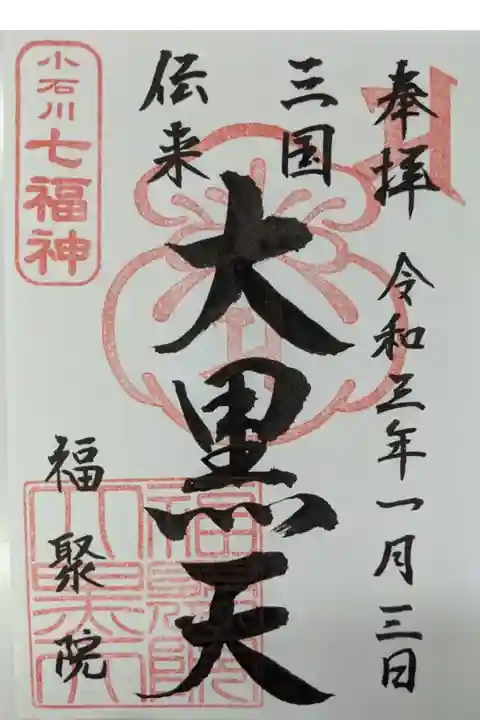 奉拝
令和三年一月三日
三国
伝来
大黒天
福聚院
小石川
七福神